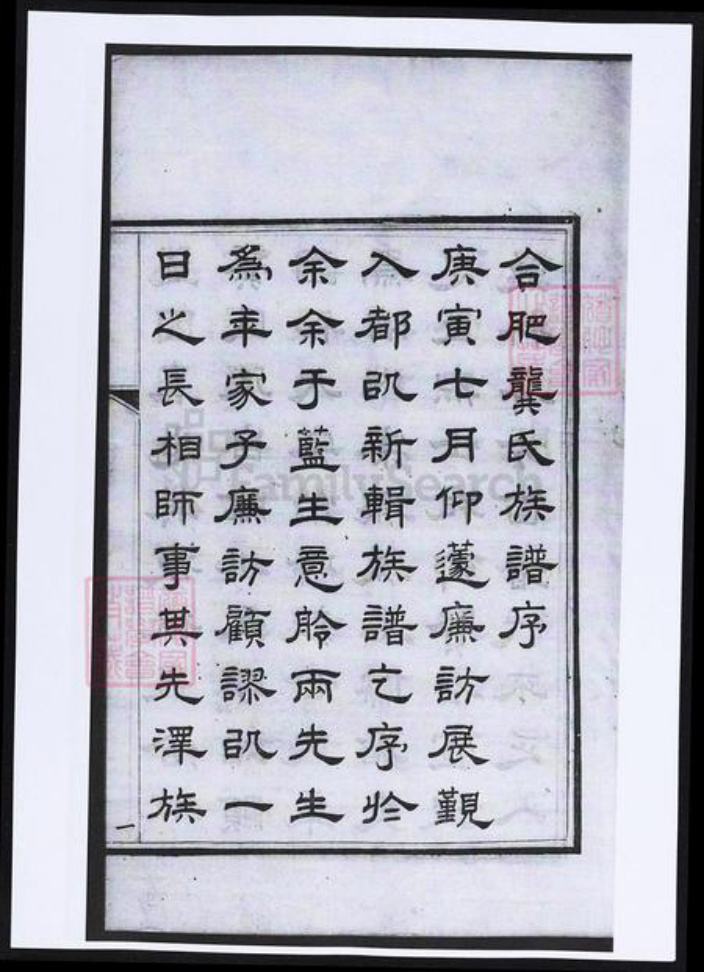 合肥龔氏族譜序
庚寅七月仰蘧廉訪展覲
入都㕥新輯族譜乞序於
余余于藍生意舲兩先生
為年家子廉訪顧謬㕥一
日之長相師事其先澤族
一
FamilySearch